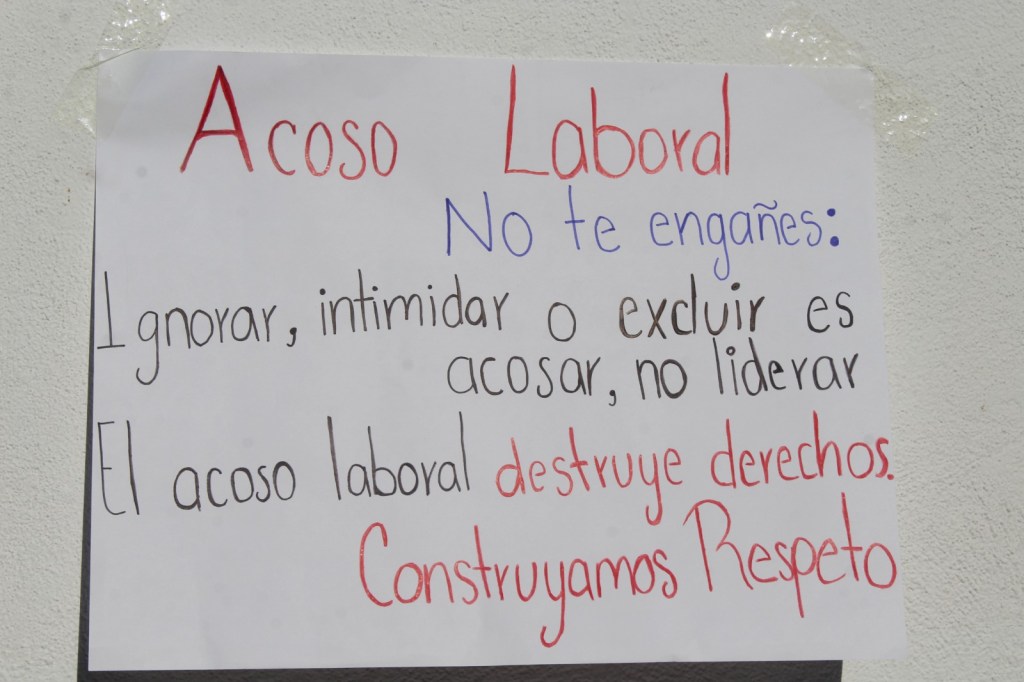 Acoso Laboral
No te engañes:
Ignorar, intimidar o excluir es
acosar, no liderar
El acoso laboral destruye derechos.
Construyamos Respeto